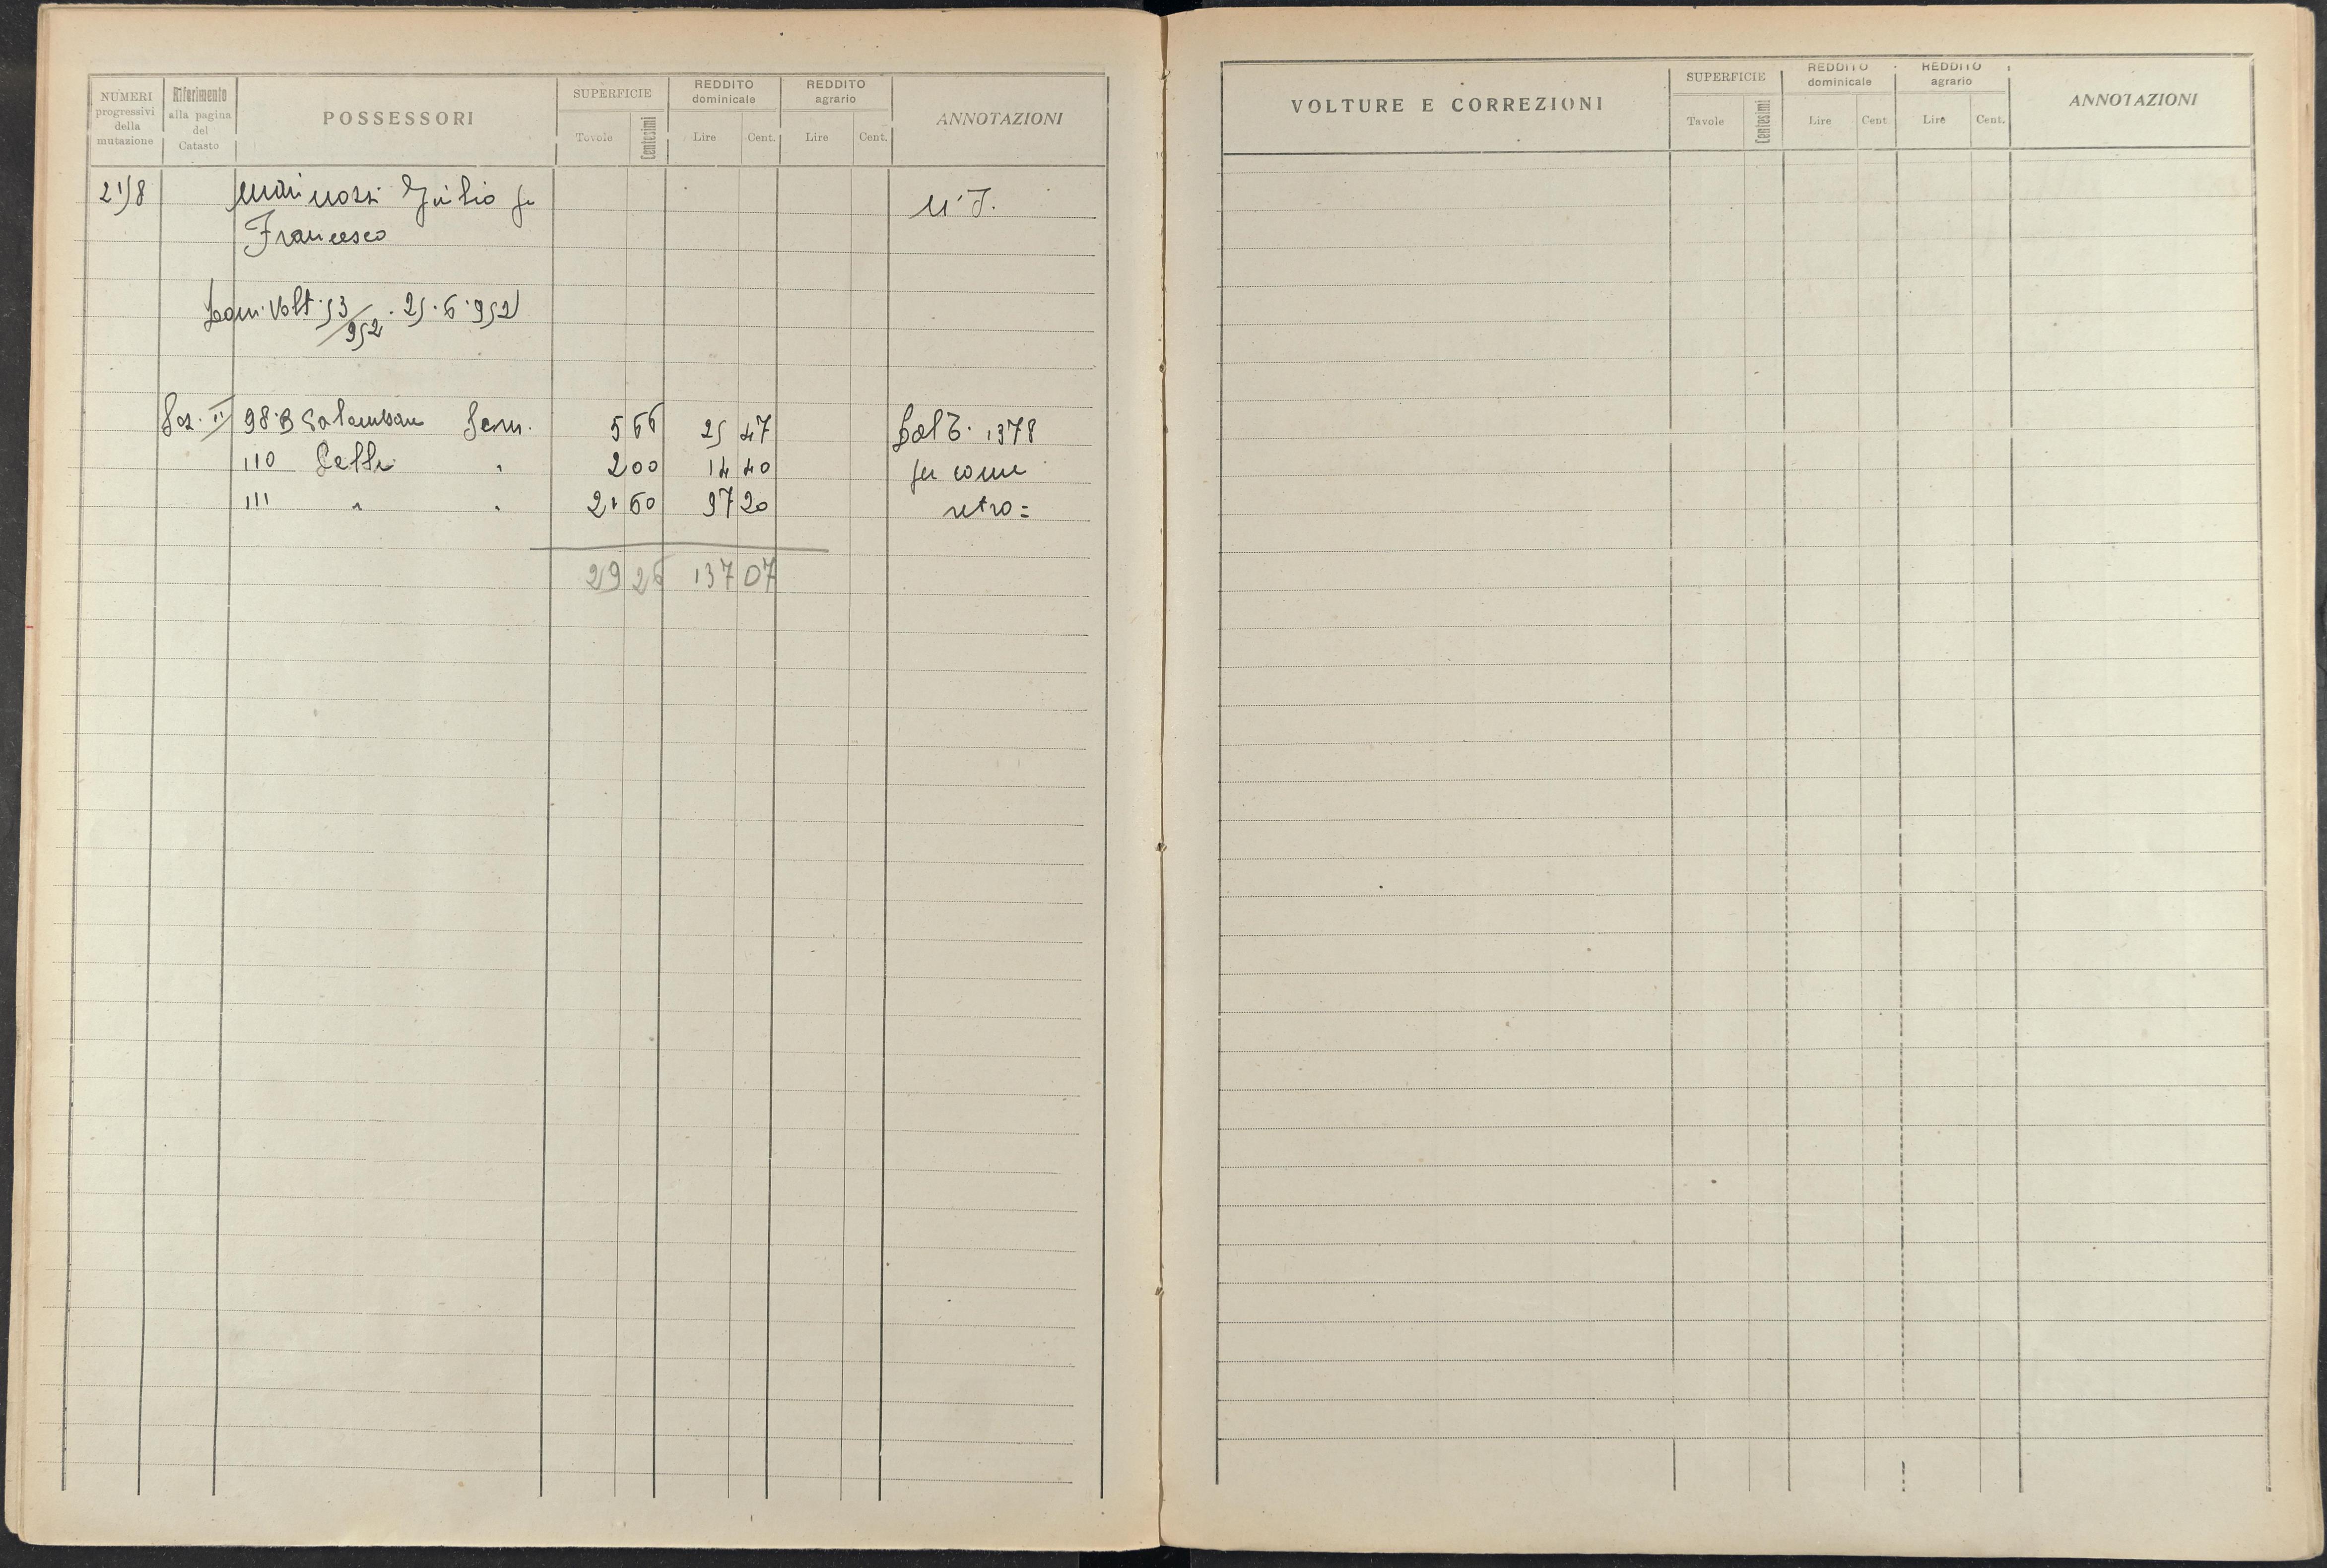 NUMERI progressivi della mutazione
Riferimento alla pagina del Catasto
POSSESSORI
SUPERFICIE
Tavole Centesimi
REDDITO dominicale
Lire Cent.
REDDITO agrario
Lire Cent.
ANNOTAZIONI
Giulio fu
Francesco
Volt. 53/952 . 25.6.952
Sez. II 98.B Sem. 5 66 25 47 1378
110 Celle " 2 00 14 40 fu come
111 " " 21 60 97 20 retro =
29 26 137 07
VOLTURE E CORREZIONI
SUPERFICIE
Tavole Centesimi
REDDITO dominicale
Lire Cent
REDDITO agrario
Lire Cent.
ANNOTAZIONI